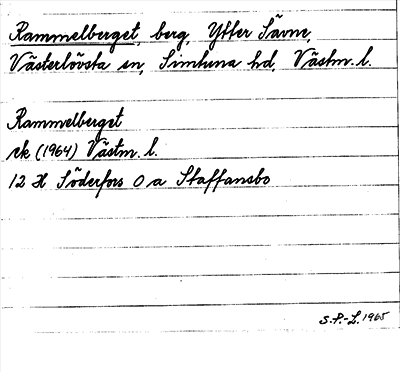 Rammelberget, berg, Ytter Sävne,
Västerlövsta sn, Simtuna hd, Västm. l.
Rammelberget
ek (1964) Västm. l.
12 H Söderfors 0 a Staffansbo
S.P.-L. 1965